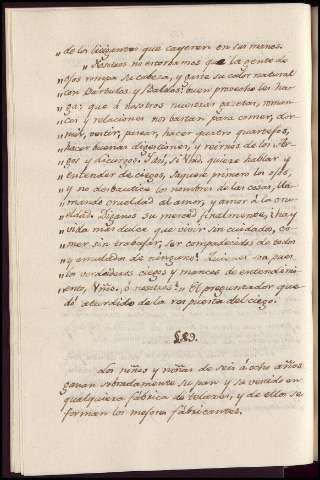 „ de los Diligentes que cayeren en sus manos.
„ Nosotros no estorbamos que la gente de
„ ojos rompa su cabeza, y gaste su calor natural
„ con Bartulos y Baldos: buen provecho les har-
„ ga: que á nosotros nuestras gazetas, roman-
„ ces y relaciones nos bastan para comer, dor-
„ mir, vestir, pasear, hacer quatro quartesos,
„ hacer buenas digestiones, y reirnos de los
„ gos y discursos. Y así, si Vmd. quiere hablar y
„ entender de ciegos, saquese primero los ojos,
„ y no desbautice los nombres de las cosas, lla-
„ mando crueldad al amor, y amor á la cru-
„ eldad. Diganos su merced finalmente, ¿hay
„ vida mas dulce que vivir sin cuidado, co-
„ mer sin trabajar, ser compadecidos de todos
„ y envidiados de ninguno? Quienes son pues
„ los verdaderos ciegos y mancos de entendimi-
„ ento, Vmds. ó nosotros?„ El preguntador que-
dó aturdido de la respuesta del ciego.
§§9.
Los niños y niñas de seis á ocho años
ganan sobradamente su pan y su vestido en
qualquiera fábrica de telares, y de ellos se
forman los mejores fabricantes.